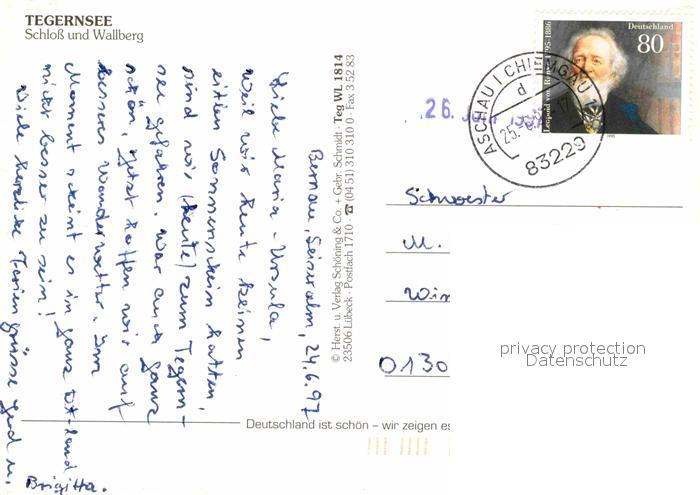 TEGERNSEE
Schloß und Wallberg
Bernau, Seiseralm, 24.6.97
Liebe Maria-Ursula,
weil wir heute keinen
eitlen Sonnenschein hatten,
sind wir (heute) zum Tegern-
see gefahren. War auch ganz
schön, jetzt hoffen wir auf
besseres Wanderwetter. Im
Moment scheint es in ganz Dt-land
nicht besser zu sein!
Viele herzliche Feriengrüsse Gerd u.
Brigitta.
© Herst. u. Verlag Schöning & Co. + Gebr. Schmidt · Teg WL 1814
23506 Lübeck · Postfach 1710 · ☎ (04 51) 310 310 · Fax 3 52 83
Deutschland ist schön – wir zeigen es
Leopold von Ranke 1795-1886
Deutschland
80
1995
ASCHAU I CHIEMGAU
d
25.
83229
26. Juni
Schwester
M.
Win
0130
privacy protection
Datenschutz